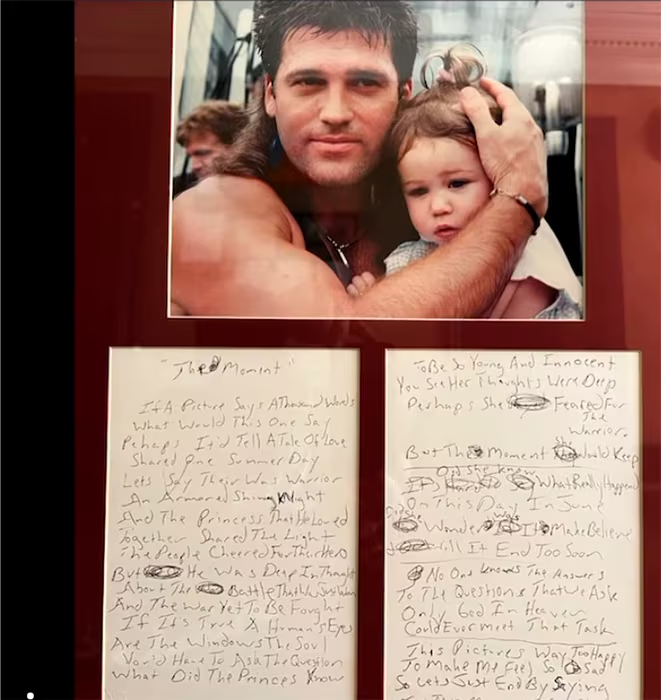 "The Moment"
If A Picture Says A Thousand Words
What Would This One Say
Pehaps It'd Tell A Tale Of Love
Shared One Summer Day
Lets Say Their Was Warrior
An Armored Shining Knight
And The Princess That He Loved
Together Shared The Light
The People Cheered For Their Hero
But He Was Deep In Thought
About The Battle That He'd Just Won
And The War Yet To Be Fought
If It's True A Human's Eyes
Are The Windows The Soul
You'd Have To Ask The Question
What Did The Princes Know
To Be So Young And Innocent
You See Her Thoughts Were Deep
Perhaps She Feared For
The
Warrior.
But The Moment She Would Keep
Did She Know What Really Happend
On This Day In June
Did She Wonder Was It Make Believe
Will It End Too Soon
No One Knows The Answer's
To The Questions That We Ask
Only God In Heaven
Could Ever Meet That Task
This Pictures Way Too Happy
To Make Me Feel So Sad
So Lets Just End By Saying